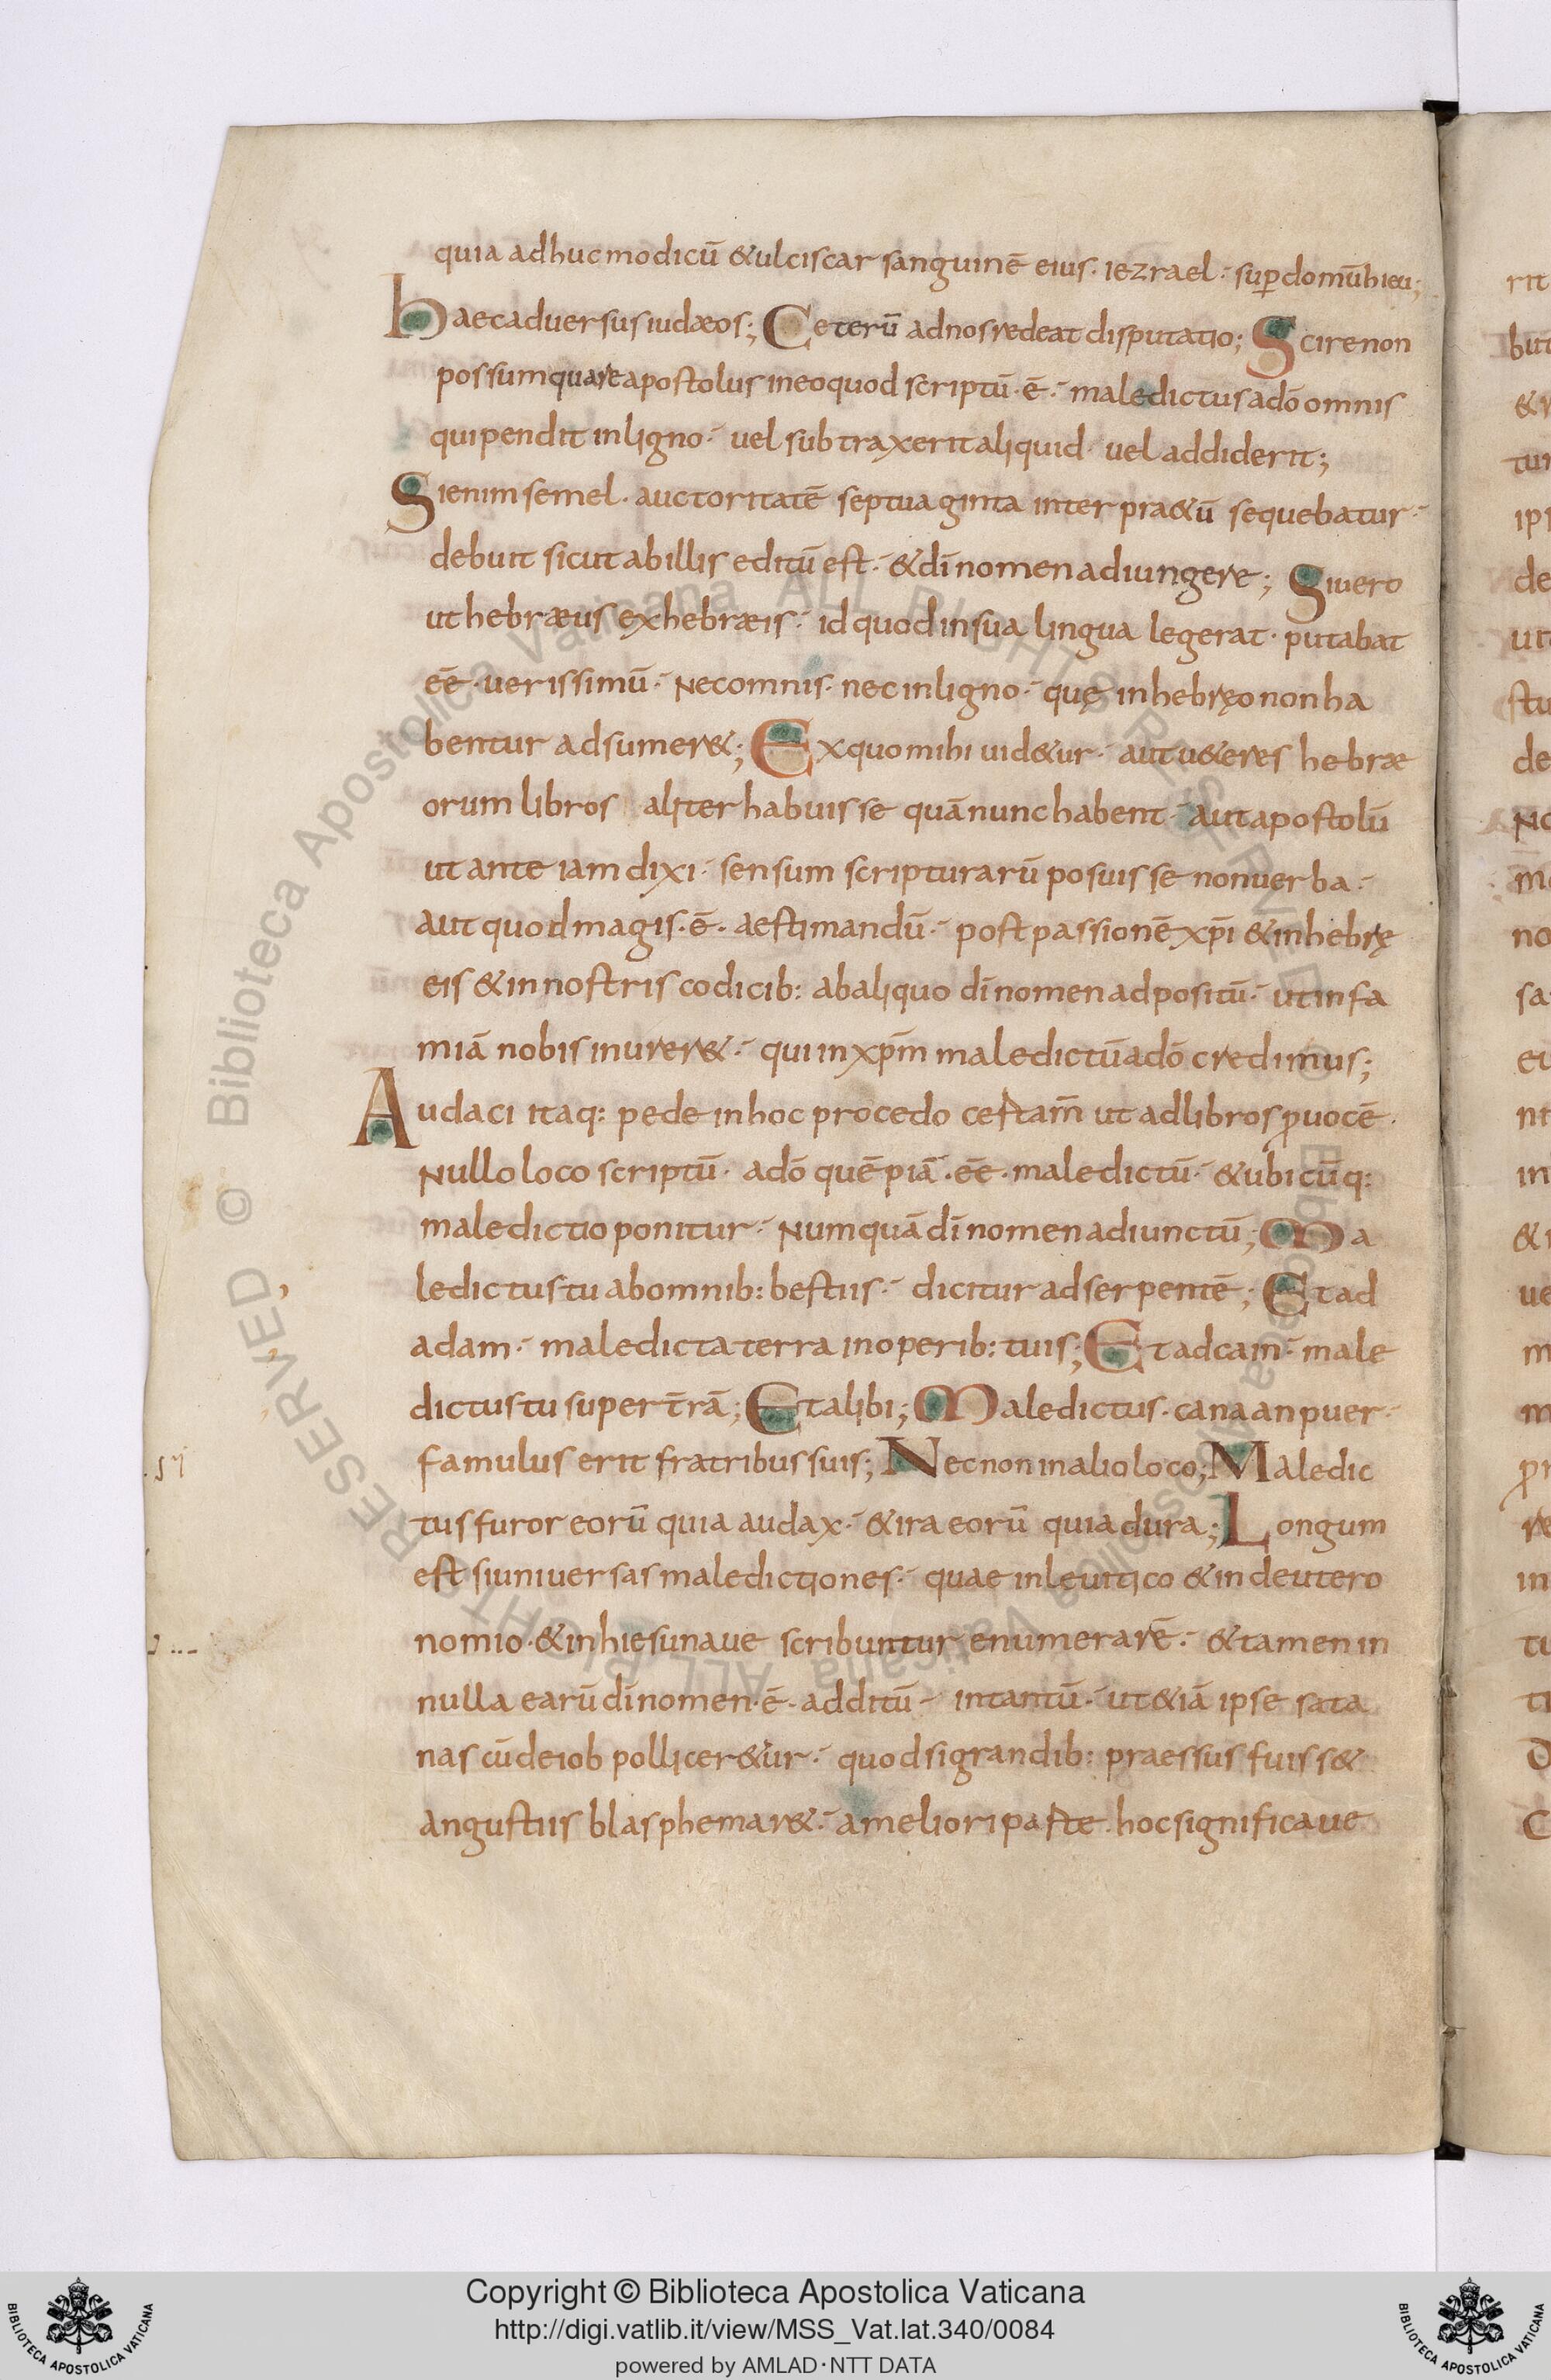 quia adhuc modicū & ulciscar sanguinē eius · iezrael · suꝑ domū hieu;
Haec aduersus iudæos; Ceterū ad nos redeat disputatio; Scire non
possum quare apostolus in eo quod scriptū · ē · maledictus a dō omnis
qui pendit in ligno · uel subtraxerit aliquid · uel addiderit;
Si enim semel · auctoritatē septuaginta interpra&ū sequebatur ·
debuit sicut ab illis editū est · & dī nomen adiungere; Si uero
ut hebræus ex hebræis · id quod in sua lingua legerat · putabat
eē · uerissimū · Nec omnis · nec in ligno · quę in hebręo non ha
bentur adsumer&; Ex quo mihi uid&ur · aut u&eres hebræ
orum libros aliter habuisse quā nunc habent · aut apostolū
ut ante iam dixi · sensum scripturarū posuisse non uerba ·
aut quod magis · ē · aestimandū · post passionē xp̄i & in hebrę
eis & in nostris codicib: ab aliquo dī nomen adpositū · ut infa
miā nobis inurer& · qui in xp̄m maledictū a dō credimus;
Audaci itaq: pede in hoc procedo certam̄ ut ad libros ꝓuocē ·
Nullo loco scriptū · a dō quēpiā · eē · maledictū · & ubicūq:
maledictio ponitur · Numquā dī nomen adiunctū; Ma
ledictus tu ab omnib: bestiis · dicitur ad serpentē; Et ad
adam · maledicta terra in operib: tuis; Et ad cain · male
dictus tu super t̄rā; Et alibi; Maledictus · canaan puer ·
famulus erit fratribus suis; Nec non in alio loco; Maledic
tus furor eorū quia audax · & ira eorū quia dura; Longum
est si uniuersas maledictiones · quae in leuitico & in deutero
nomio · & in hiesu naue scribuntur enumerarē · & tamen in
nulla earū dī nomen · ē · additū · intantū · ut &iā ipse sata
nas cū de iob pollicer&ur · quod si grandib: praessus fuiss&
angustiis blasphemar& · a meliori parte · hoc significaue
Copyright © Biblioteca Apostolica Vaticana
http://digi.vatlib.it/view/MSS_Vat.lat.340/0084
powered by AMLAD·NTT DATA